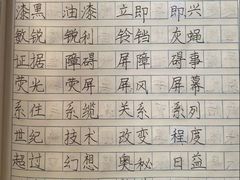 漆黑 油漆 立即 即兴
敏锐 锐利 铃铛 灰蝇
证据 障碍 屏障 碍事
荧光 荧屏 屏风 屏幕
系住 系缆 关系 系列
世纪 技术 改变 程度
超过 幻想 奥秘 日益